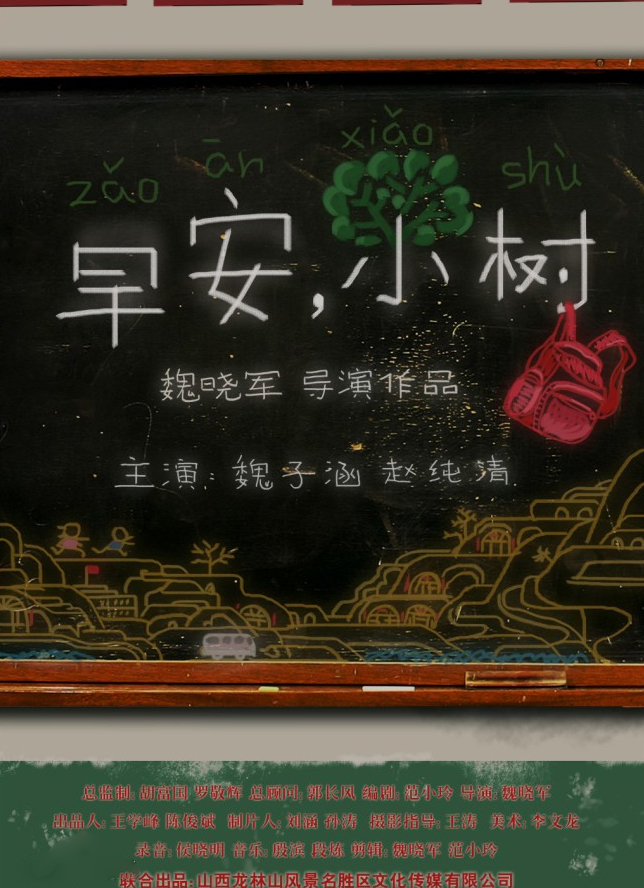 zǎo ān xiǎo shù
早安，小树
魏晓军 导演作品
主演：魏子涵 赵纯清
总监制：胡富国 罗敬辉 总顾问：郭长风 编剧：范小玲 导演：魏晓军
出品人：王学峰 陈俊斌 制片人：刘涵 孙涛 摄影指导：王涛 美术：李文龙
录音：侯晓明 音乐：殷滨 段炼 剪辑：魏晓军 范小玲
联合出品：山西龙林山风景名胜区文化传媒有限公司